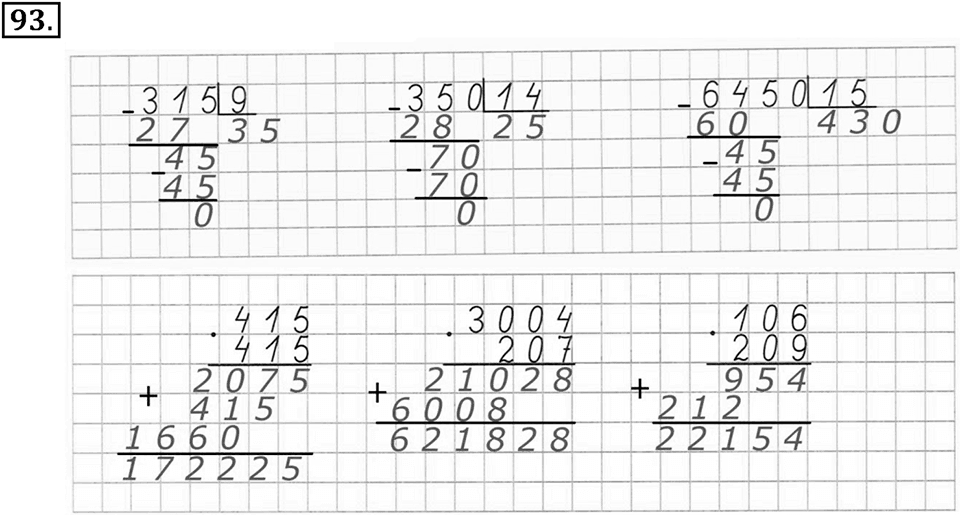 93.
-315|9 -350|14 -6450|15
27 35 28 25 60 430
-45 -70 -45
45 70 45
0 0 0
·415 ·3004 ·106
415 207 209
+ 2075 + 21028 + 954
415 6008 212
1660 621828 22154
172225